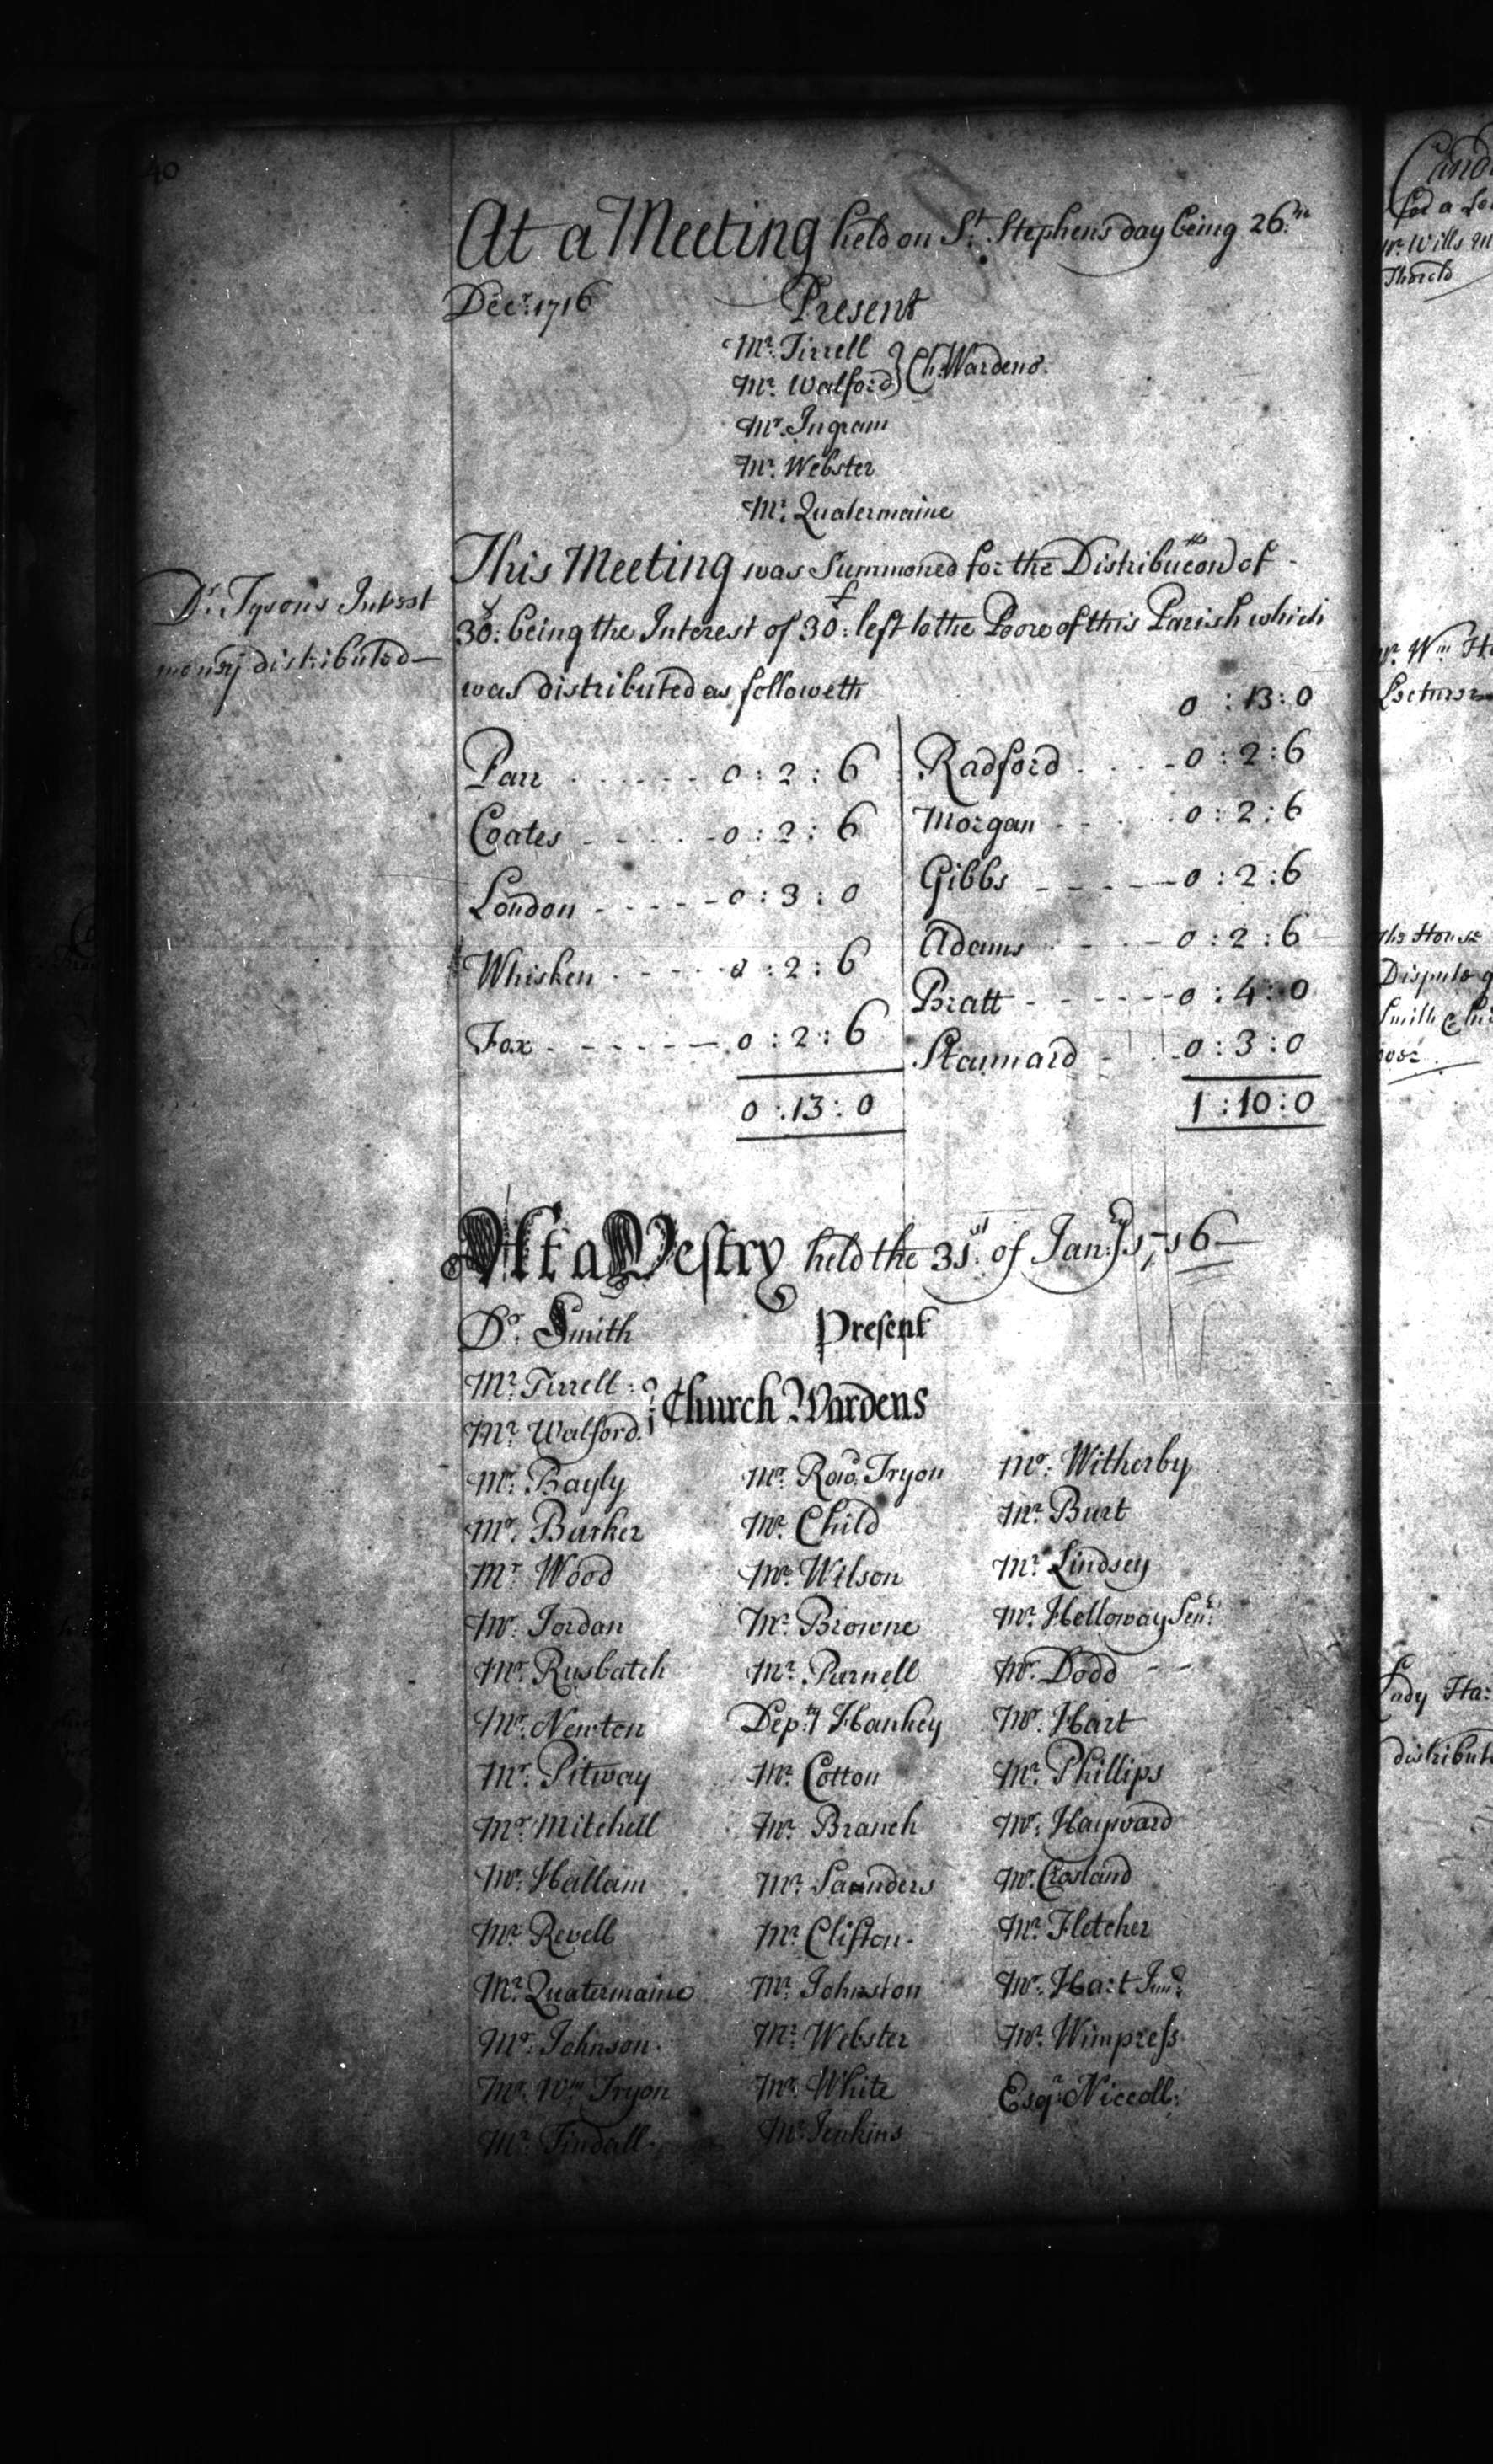 40
At a Meeting held on St. Stephens day being 26th
Decr. 1716 Present
Mr. Tirrell
Mr. Walford } Ch: Wardens.
Mr. Ingram
Mr. Webster
Mr. Quatermaine
Dr. Tysons Intrest
money distributed
This Meeting was Summoned for the Distribucon of
30s: being the Interest of 30£: left to the Poore of this Parish which
was distributed as followeth
0 : 13 : 0
Parr 0 : 2 : 6 Radford 0 : 2 : 6
Coates 0 : 2 : 6 Morgan 0 : 2 : 6
London 0 : 3 : 0 Gibbs 0 : 2 : 6
Whisken 0 : 2 : 6 Adams 0 : 2 : 6
Fox 0 : 2 : 6 Pratt 0 : 4 : 0
Stannard 0 : 3 : 0
0 : 13 : 0 1 : 10 : 0
At a Vestry held the 31st. of Janry 1716
Dr. Smith Present
Mr. Tirrell
Mr. Walford. } Church Wardens
Mr. Bayly Mr. Rowd. Tryon Mr. Witherby
Mr. Barker Mr. Child Mr. Burt
Mr. Wood Mr. Wilson Mr. Lindsey
Mr. Jordan Mr. Browne Mr. Holloway Senr.
Mr. Rusbatch Mr. Parnell Mr. Dodd
Mr. Newton Depty Hankey Mr. Hart
Mr. Pitway Mr. Cotton Mr. Phillips
Mr. Mitchell Mr. Branch Mr. Hayward
Mr. Hallam Mr. Saunders Mr. Crosland
Mr. Revell Mr. Clifton Mr. Fletcher
Mr. Quatermaine Mr. Johnston Mr. Hart Junr.
Mr. Johnson Mr. Webster Mr. Wimpress
Mr. Wm. Tryon Mr. White Esqr. Niccoll:
Mr. Tindall Mr. Jenkins
for a
Mr. Wills
Thorold
Mr. Wm.
Lecturer
The House
Dispute
Smith
Lady
distribut